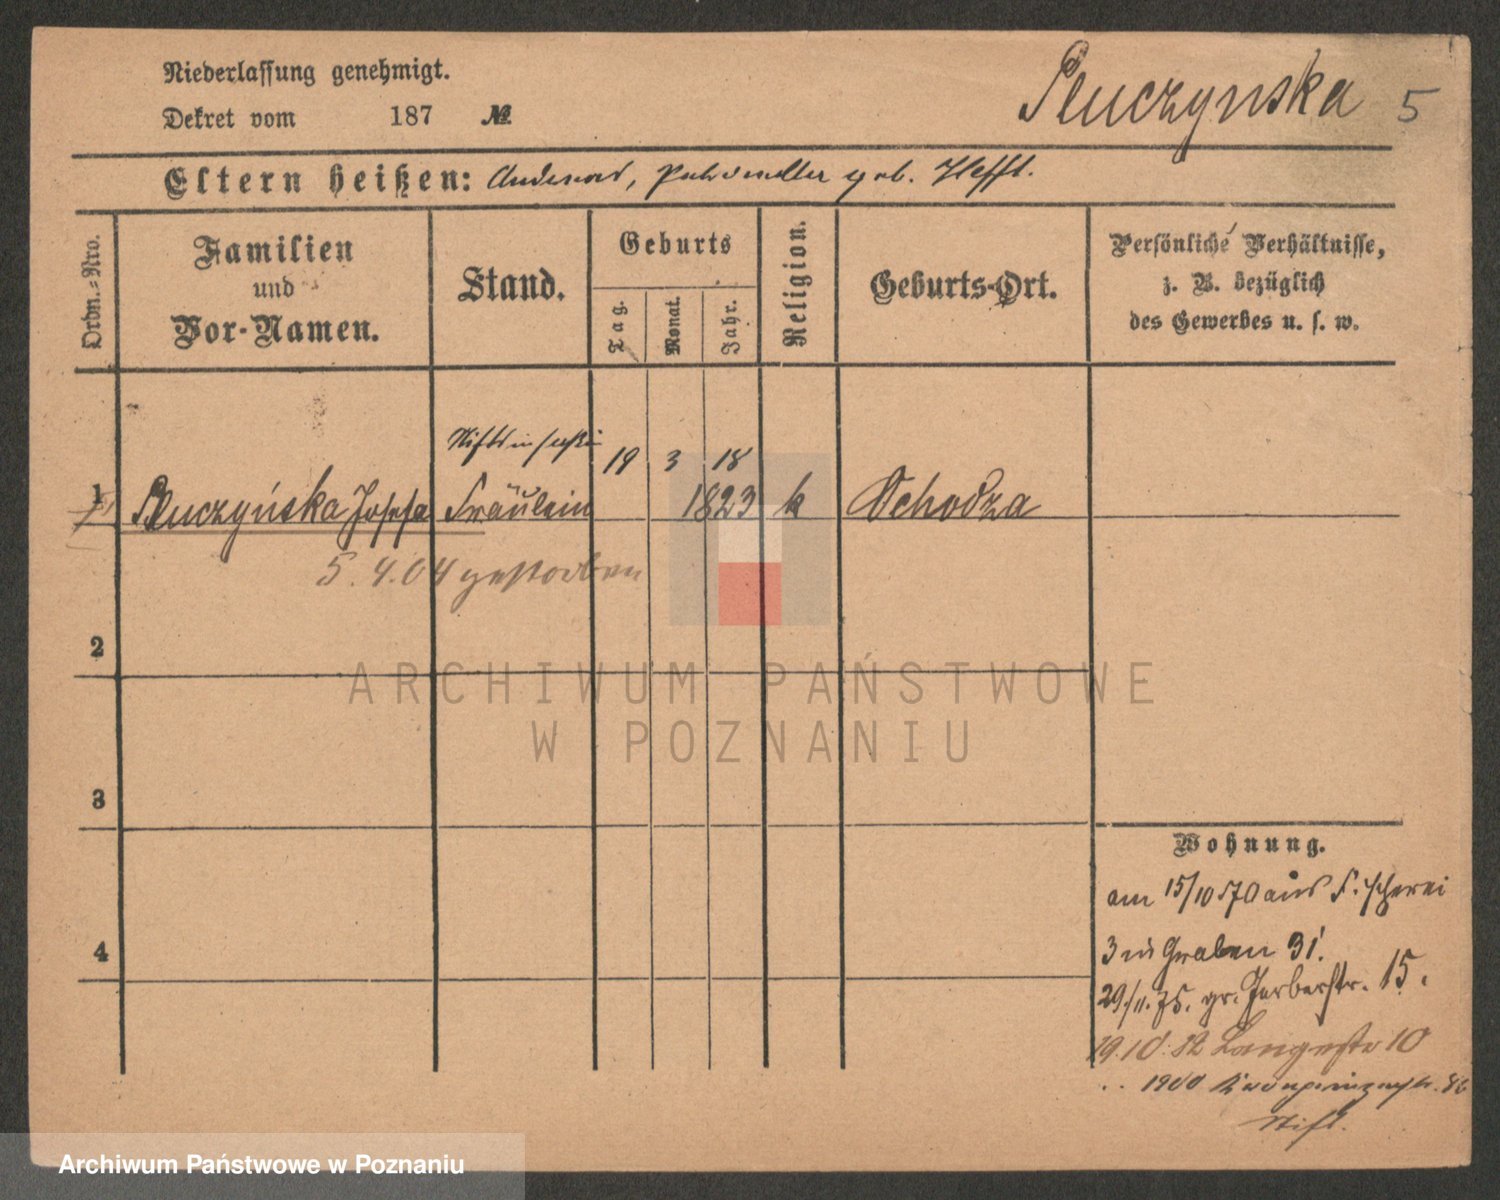 Niederlassung genehmigt.
Dekret vom 187 №
Pluczynska 5
Eltern heißen: geb.
Ordn.-Nro.
Familien
und
Vor-Namen.
Stand.
Geburts
Tag.
Monat.
Jahr.
Religion.
Geburts-Ort.
Persönliche Verhältnisse,
z. B. bezüglich
des Gewerbes u. s. w.
19 3 18
1 Pluczyńska Josefa Fräulein 1823 k Ochodza
5.4.04 gestorben
2
3
4
ARCHIWUM PAŃSTWOWE
W POZNANIU
Wohnung.
am 15/10 70 aus Fischerei
3 in Graben 31.
29./11. 75. gr. Gerberstr. 15.
19.10.82 Langestr 10
1900 Kronprinzenstr.
Stift.
Archiwum Państwowe w Poznaniu